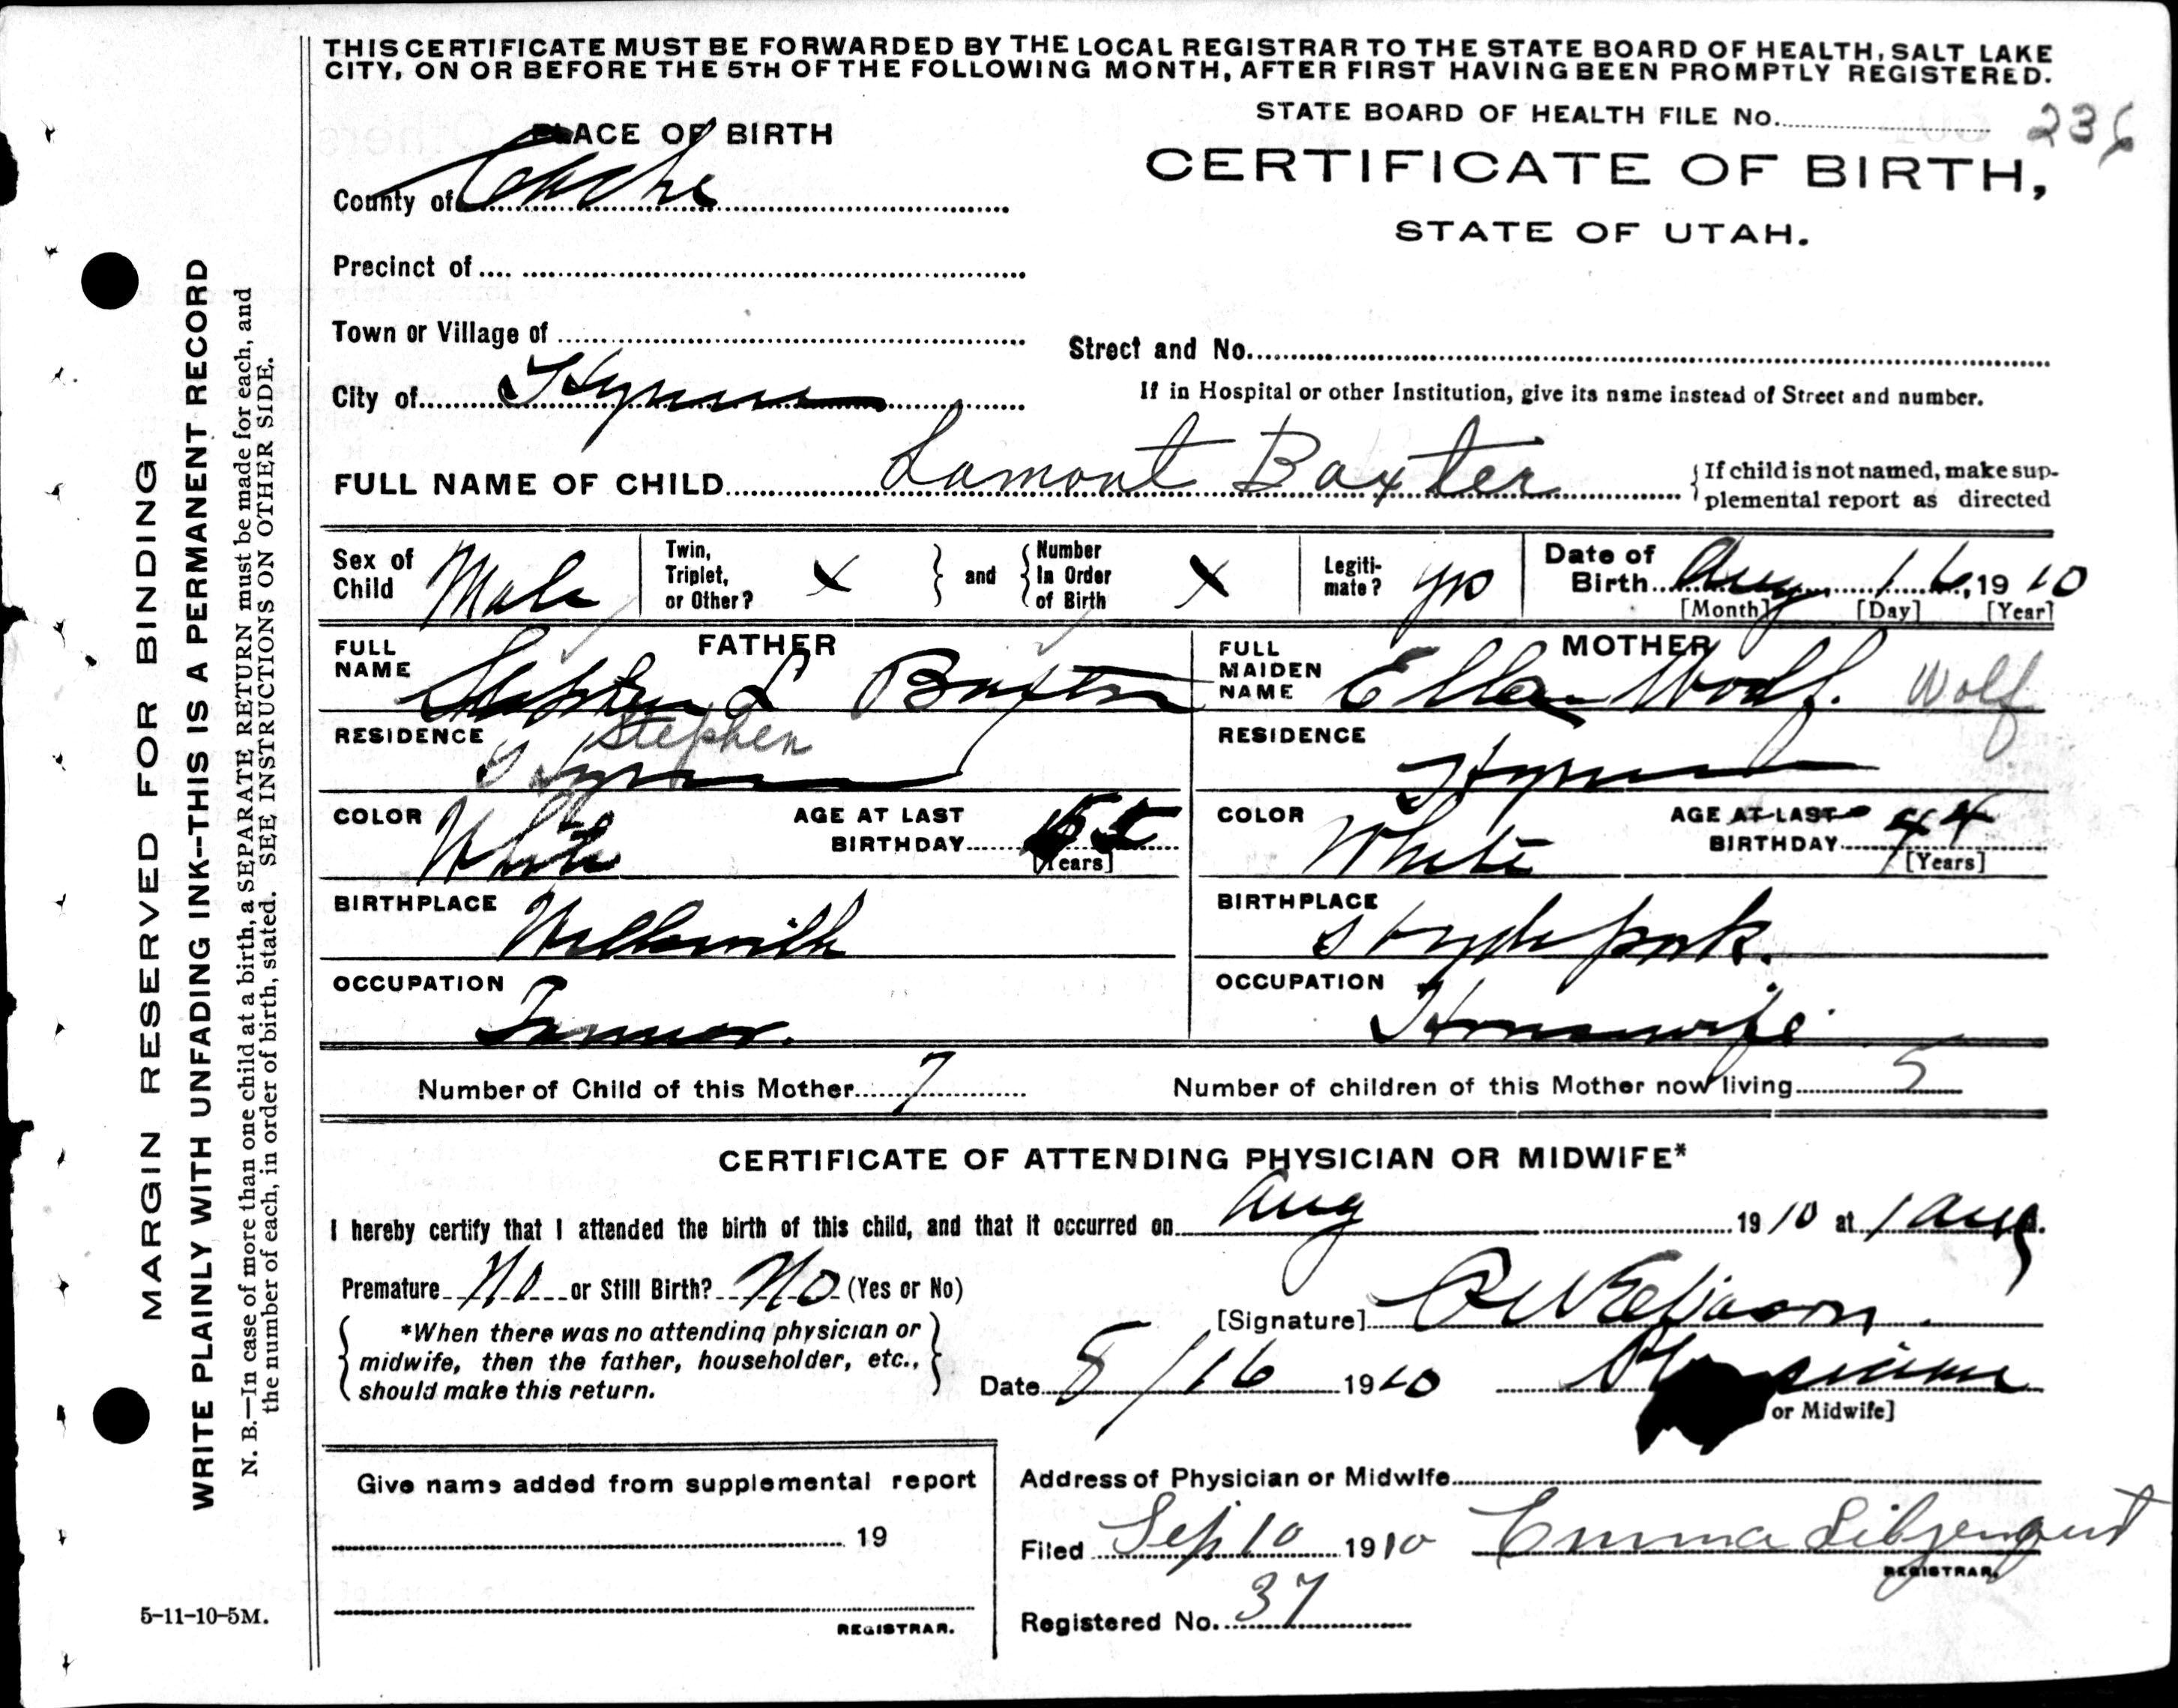 THIS CERTIFICATE MUST BE FORWARDED BY THE LOCAL REGISTRAR TO THE STATE BOARD OF HEALTH, SALT LAKE
CITY, ON OR BEFORE THE 5TH OF THE FOLLOWING MONTH, AFTER FIRST HAVING BEEN PROMPTLY REGISTERED.
STATE BOARD OF HEALTH FILE No. 236
PLACE OF BIRTH
CERTIFICATE OF BIRTH,
STATE OF UTAH.
County of Cache
Precinct of
Town or Village of
Street and No.
City of Hyrum
If in Hospital or other Institution, give its name instead of Street and number.
FULL NAME OF CHILD Lamont Baxter
{If child is not named, make sup-
plemental report as directed
Sex of Child Male
Twin, Triplet, or Other? X } and { Number In Order of Birth X
Legiti-mate? yes
Date of Birth Aug 16, 1910
[Month] [Day] [Year]
FATHER
FULL NAME Stephen L Baxter
Stephen
RESIDENCE Hyrum
COLOR White
AGE AT LAST BIRTHDAY 55
[Years]
BIRTHPLACE Wellsville
OCCUPATION Farmer.
MOTHER
FULL MAIDEN NAME Ellen Wolf. Wolf
RESIDENCE Hyrum
COLOR White
AGE AT LAST BIRTHDAY 44
[Years]
BIRTHPLACE Hyde park.
OCCUPATION Housewife
Number of Child of this Mother 7
Number of children of this Mother now living 5
CERTIFICATE OF ATTENDING PHYSICIAN OR MIDWIFE*
I hereby certify that I attended the birth of this child, and that it occurred on Aug 1910 at 1
Premature No or Still Birth? No (Yes or No)
{ *When there was no attending physician or
midwife, then the father, householder, etc.,
should make this return. }
[Signature] Eliason
Date 5/16 1910 Physician
or Midwife]
Give name added from supplemental report
19
REGISTRAR.
Address of Physician or Midwife
Filed Sep 10 1910 Emma
REGISTRAR.
Registered No. 37
5-11-10-5M.
MARGIN RESERVED FOR BINDING
WRITE PLAINLY WITH UNFADING INK--THIS IS A PERMANENT RECORD
N. B.—In case of more than one child at a birth, a SEPARATE RETURN must be made for each, and
the number of each, in order of birth, stated. SEE INSTRUCTIONS ON OTHER SIDE.